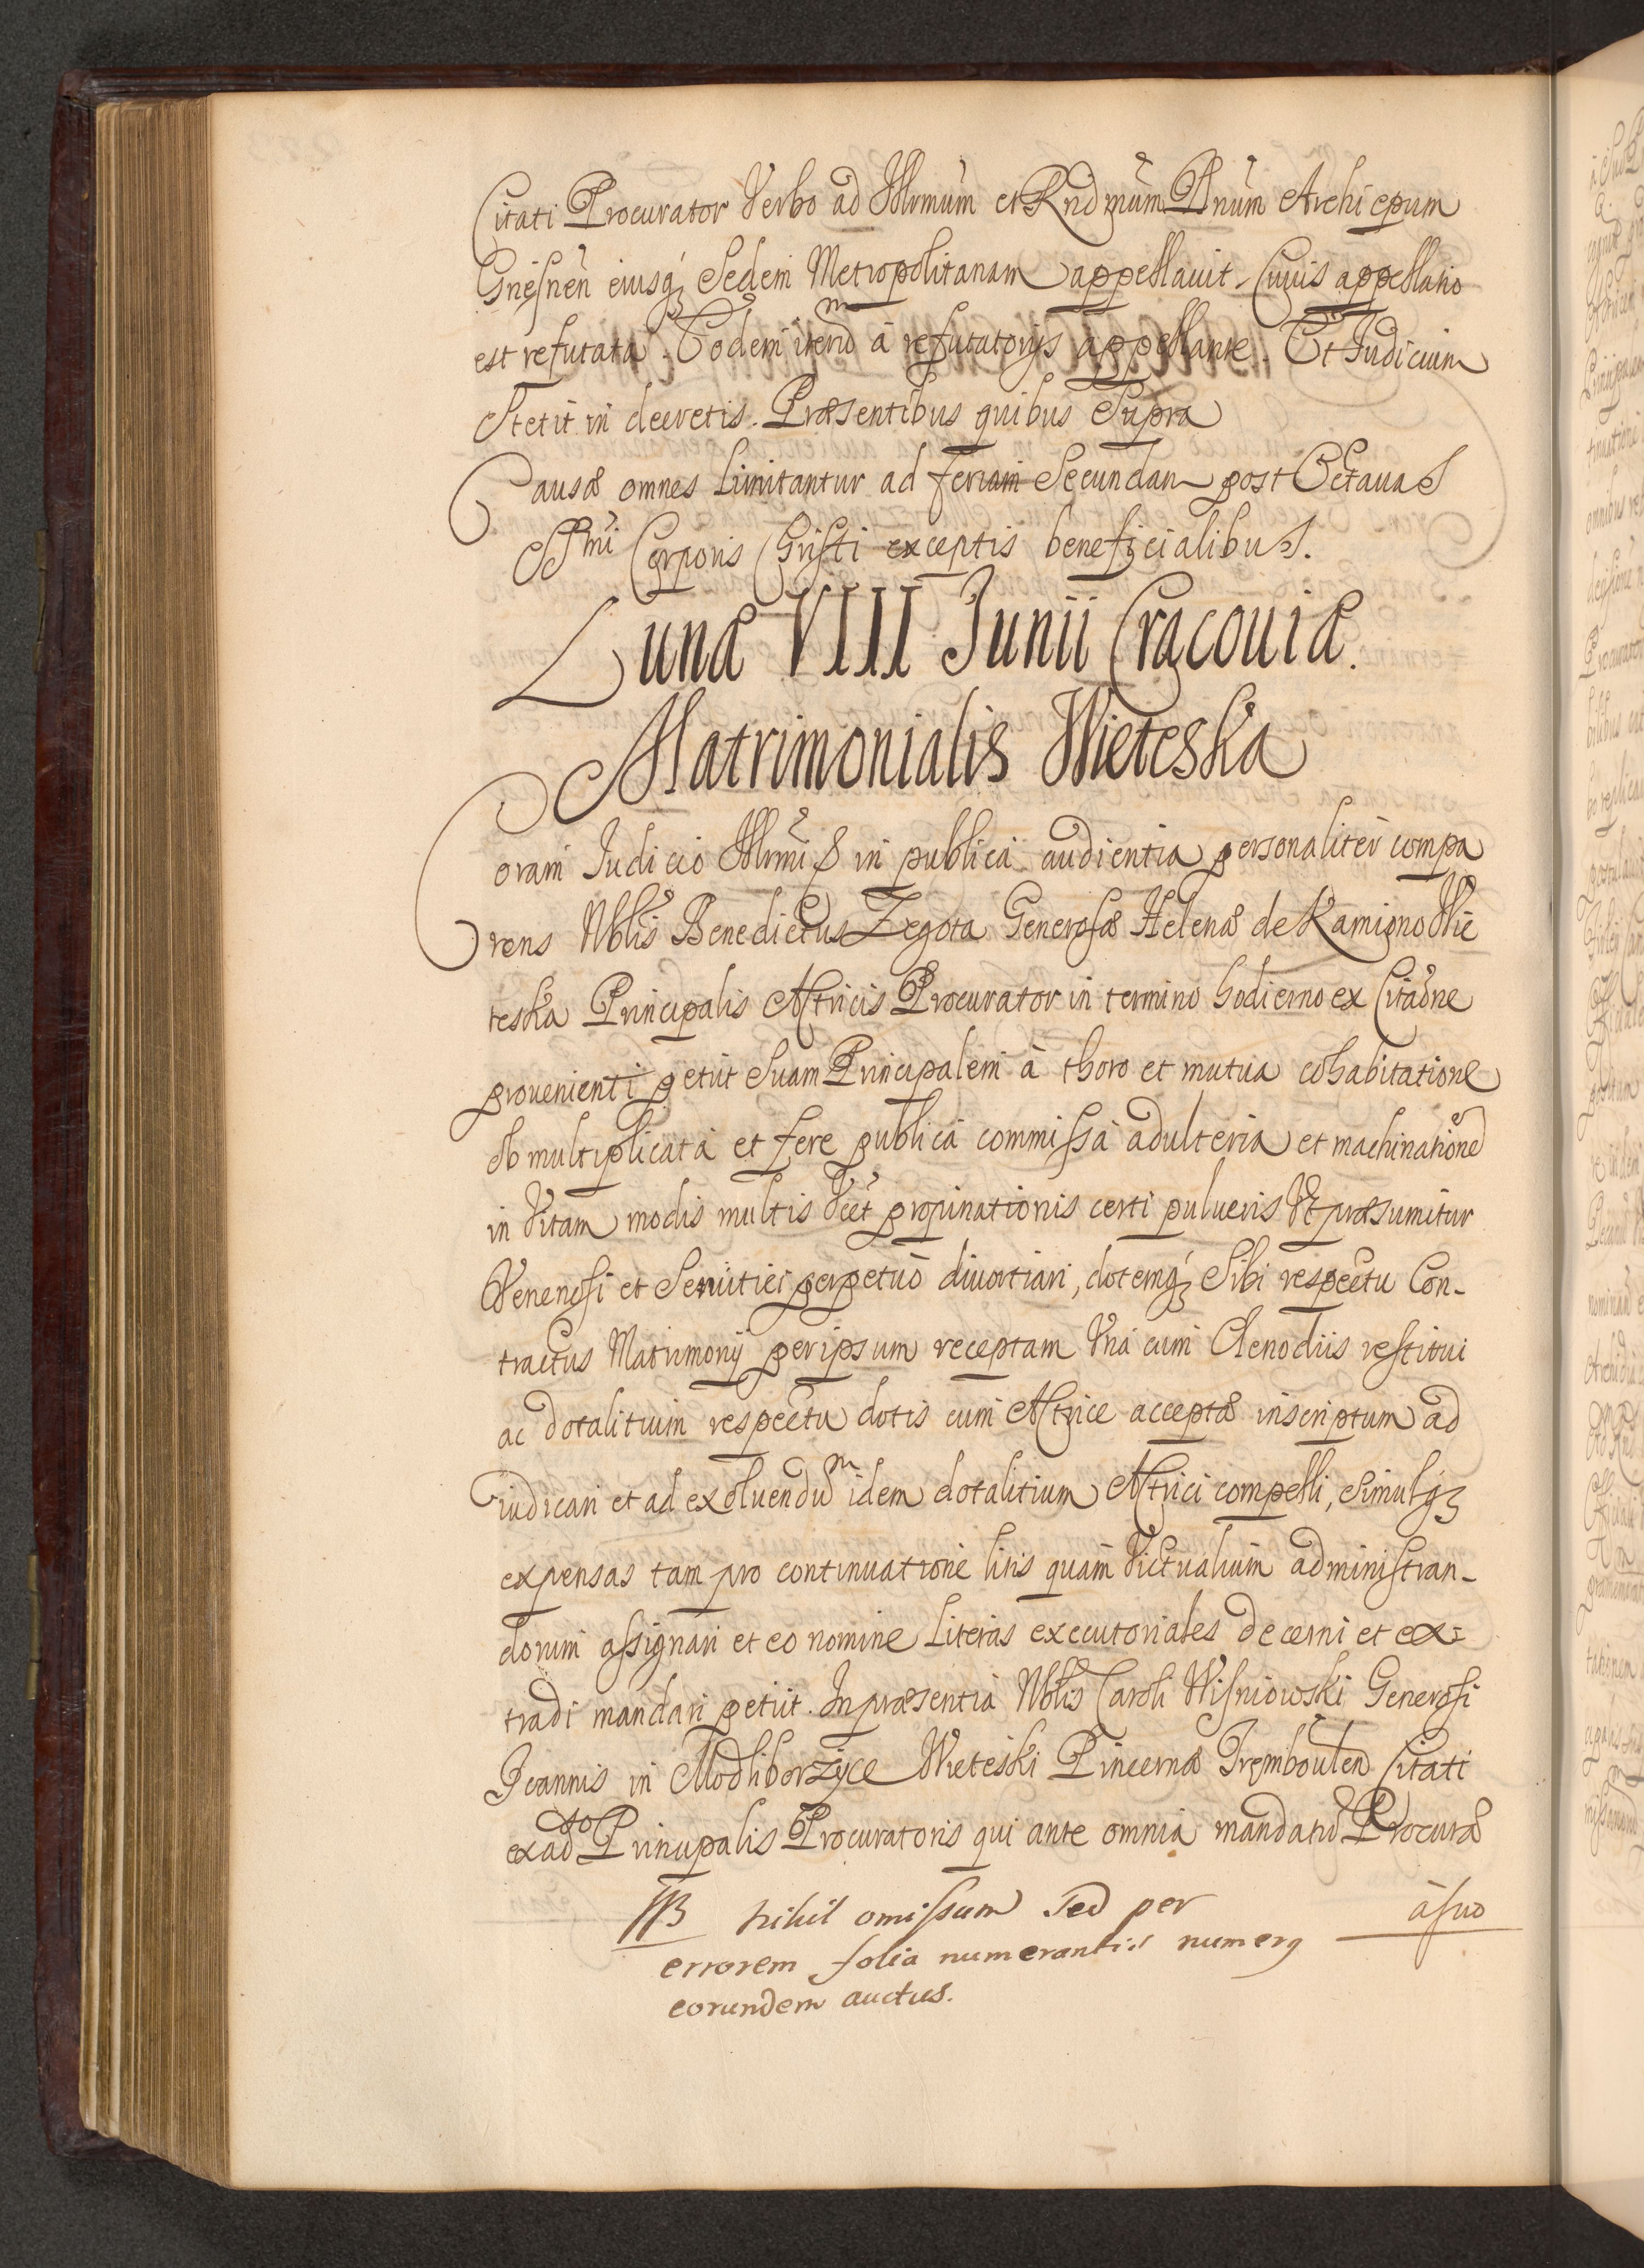 Citati Procurator Verbo ad Illrmum et Rndmum Dnum Archiepum
Gnesnen eiusq Sedem Metropolitanam appellauit. Cuius appellatio
est refutata. Eodem iterum à refutatorijs appellante. Et Iudicium
Stetit in decretis. Præsentibus quibus Supra
Causæ omnes Limitantur ad feriam Secundam post Octauas
SSmi Corporis Christi exceptis beneficialibus.
Lunæ VIII Junii Cracouiæ.
Matrimonialis Wieteska
Coram Iudicio Illrmi S in publica audientia personaliter compa
rens Nblis Benedictus Zegota Generosæ Helenæ de Kamigno Wie
teska Principalis Actricis Procurator in termino hodierno ex Citaone
prouenienti petiit Suam Principalem à thoro et mutua cohabitatione
ob multiplicata et fere publica commissa adulteria et machinatione
in Vitam modis multis Vcet propinationis certi pulueris Vt præsumitur
Venenosi et Seruitiei perpetuo diuortiari, dotemq Sibi respectu Con-
tractus Matrimonij per ipsum receptam Vna cum Clenodiis restitui
ac dotalitium respectu dotis cum Actrice acceptæ inscriptum ad
iudicari et ad exoluendum idem dotalitium Actrici compelli, Simulq
expensas tam pro continuatione litis quam Victualium administran-
dorum assignari et eo nomine Literas executoriales decerni et ex-
tradi mandari petiit. In præsentia Nblis Caroli Wisniowski Generosi
Joannis in Modliborzyce Wieteski Pincernæ Tremboulen Citati
ex adto Principalis Procuratoris qui ante omnia mandatum Procuræ
à suo
NB nihil omissum Sed per
errorem folia numerantis numerq
eorundem auctus.